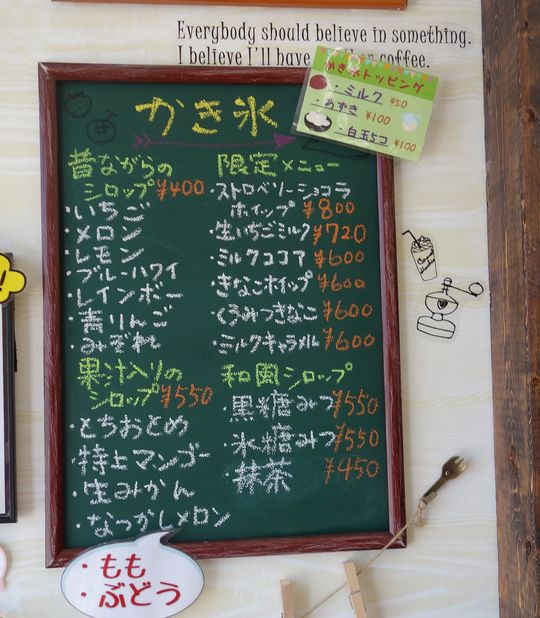 Everybody should believe in something.
I believe I'll have
coffee.
かき氷トッピング
・ミルク ¥50
・あずき ¥100
・白玉5コ ¥100
かき氷
昔ながらの
シロップ ¥400
・いちご
・メロン
・レモン
・ブルーハワイ
・レインボー
・青りんご
・みぞれ
果汁入りの
シロップ ¥550
・とちおとめ
・特上マンゴー
・生みかん
・なつかしメロン
・もも
・ぶどう
限定メニュー
・ストロベリーショコラ
ホイップ ¥800
・生いちごミルク ¥720
・ミルクココア ¥600
・きなこホイップ ¥600
・くるみつきなこ ¥600
・ミルクキャラメル ¥600
和風シロップ
・黒糖みつ ¥550
・氷糖みつ ¥550
・抹茶 ¥450